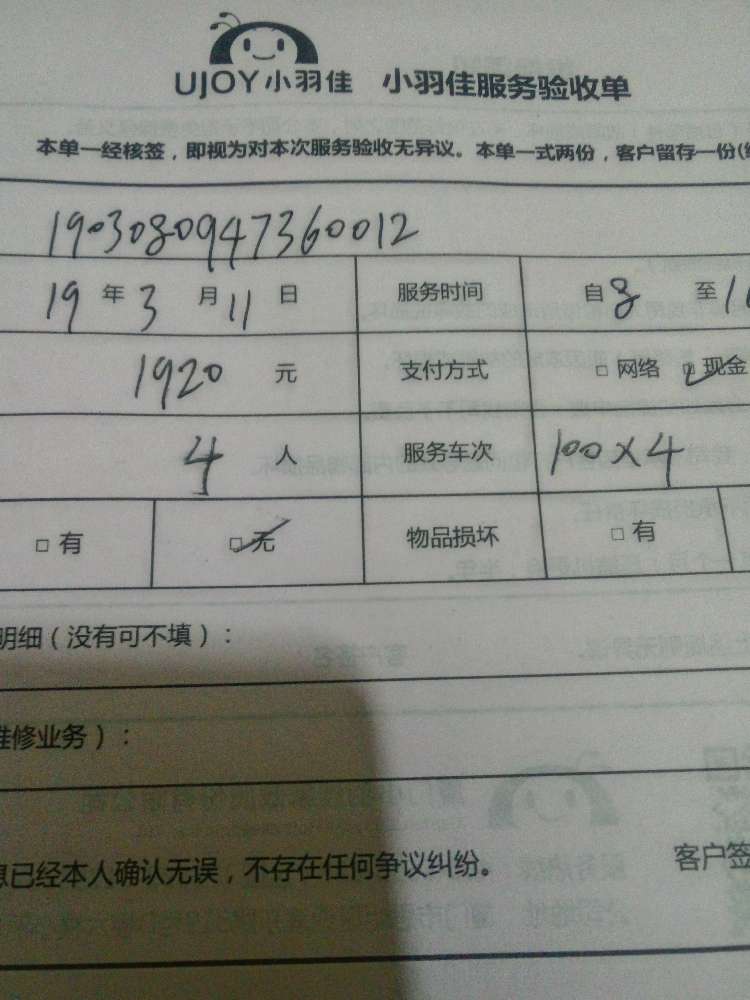 UJOY小羽佳 小羽佳服务验收单
本单一经核签，即视为对本次服务验收无异议。本单一式两份，客户留存一份
1903080947360012
19年3月11日 服务时间 自8至
1920元 支付方式 □网络 ☑现金
4人 服务车次 100×4
□有 ☑无 物品损坏 □有
明细（没有可不填）：
维修业务）：
息已经本人确认无误，不存在任何争议纠纷。 客户签